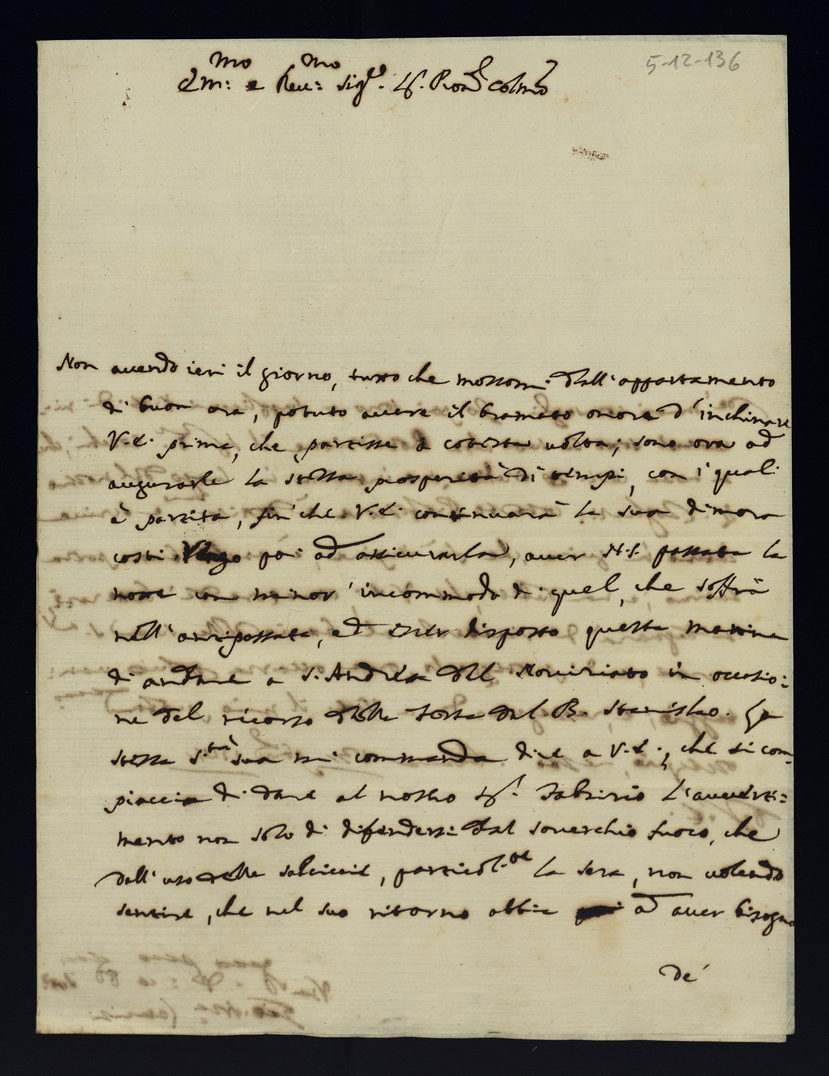 5-12-136
Illmo: e Revmo: Sigre. Sr. Pron Colmo
Non avendo ieri il giorno, tutto che mossomi dall'appartamento
di buon ora, potuto avere il bramato onore d'inchinare
V.S. prima, che partisse a cotesta volta; sono ora ad
augurarle la stessa prosperità di tempi, con i quali
è partita, fin che V.S. continuarà la sua dimora
costì. Vengo poi ad assicurarla, aver N.S. passata la
notte con minor' incommodo di quel, che soffrì
nell'antipassata, ed esser disposto questa mattina
di andare a S. Andrea del Noviziato in occasio:
ne del ricorso della Festa del B. Stanislao. La
stessa S.tà sua mi commanda dire a V.S., che si com-
piaccia di dare al nostro Sr. Fabrizio l'avverti:
mento non solo di difendersi dal soverchio fuoco, che
dall'uso delle salciccie, particol.te la sera, non volendo
sentire, che nel suo ritorno abbia ad aver bisogno
de'